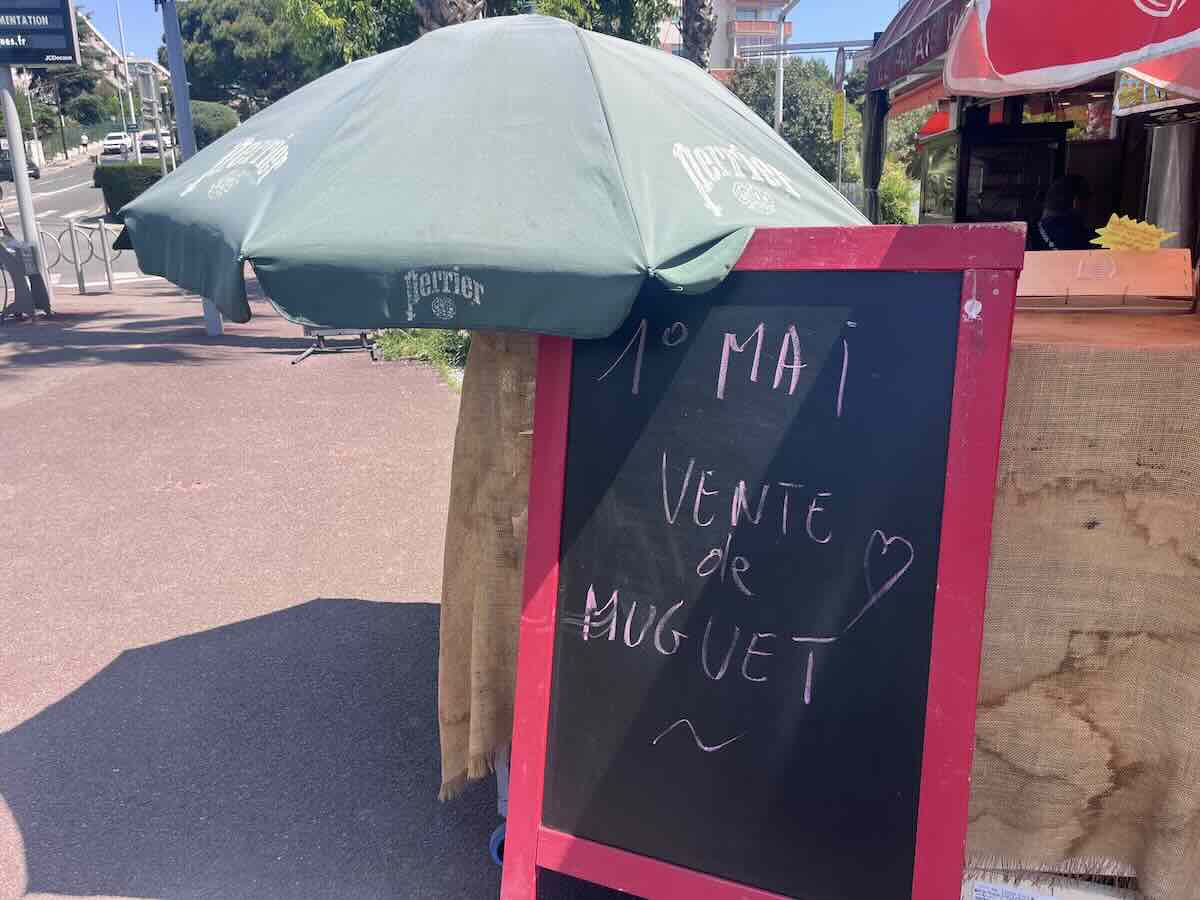 MENTATION
ues.fr
JCDecaux
perrier
perrier
perrier
1° MAi
VENTE
de
MUGUET
~